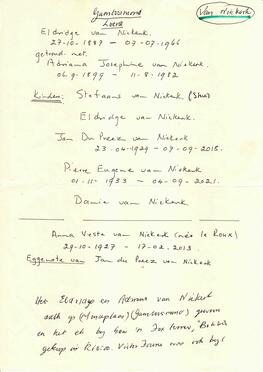 Gamtoosmond
Loerie
Van Niekerk
Eldridge van Niekerk
27-10-1887 – 07-07-1966
getroud met.
Adriana Josephine van Niekerk.
06.9-1899 – 11-8-1982
Kinders: Stefaans van Niekerk (Shu)
Eldridge van Niekerk.
Jan Du Preez van Niekerk
23.04-1929 – 09-09-2015.
Pierre Eugene van Niekerk
01-11-1933 – 04-09-2021.
Damie van Niekerk
Anna Vesta van Niekerk (née le Roux)
29-10-1927 – 17-02-2013
Eggenote van Jan du Preez van Niekerk
Het Eldridge en Adriana van Niekerk
(Gamtoosmond) gewoon
en het ook by hom 'n Fox terrier,